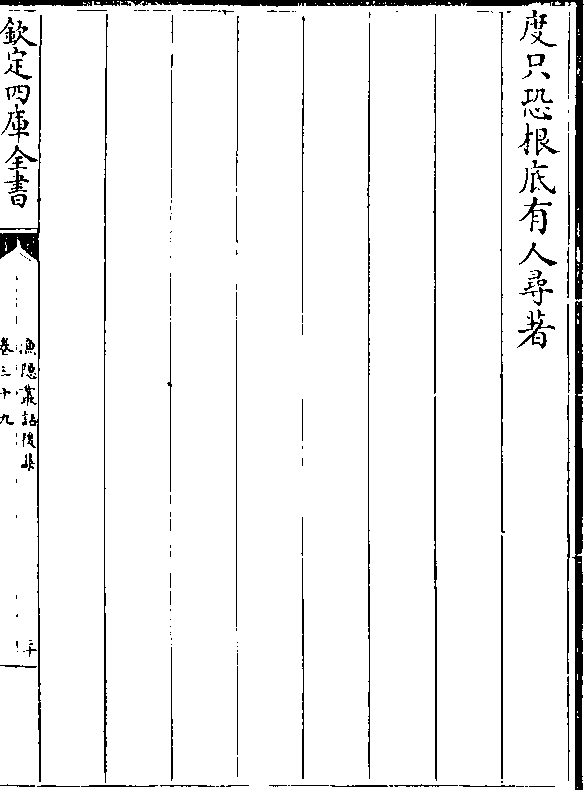 度只恐根底有人尋著
欽定四庫全書
漁隱叢話後集
卷三十九
二十